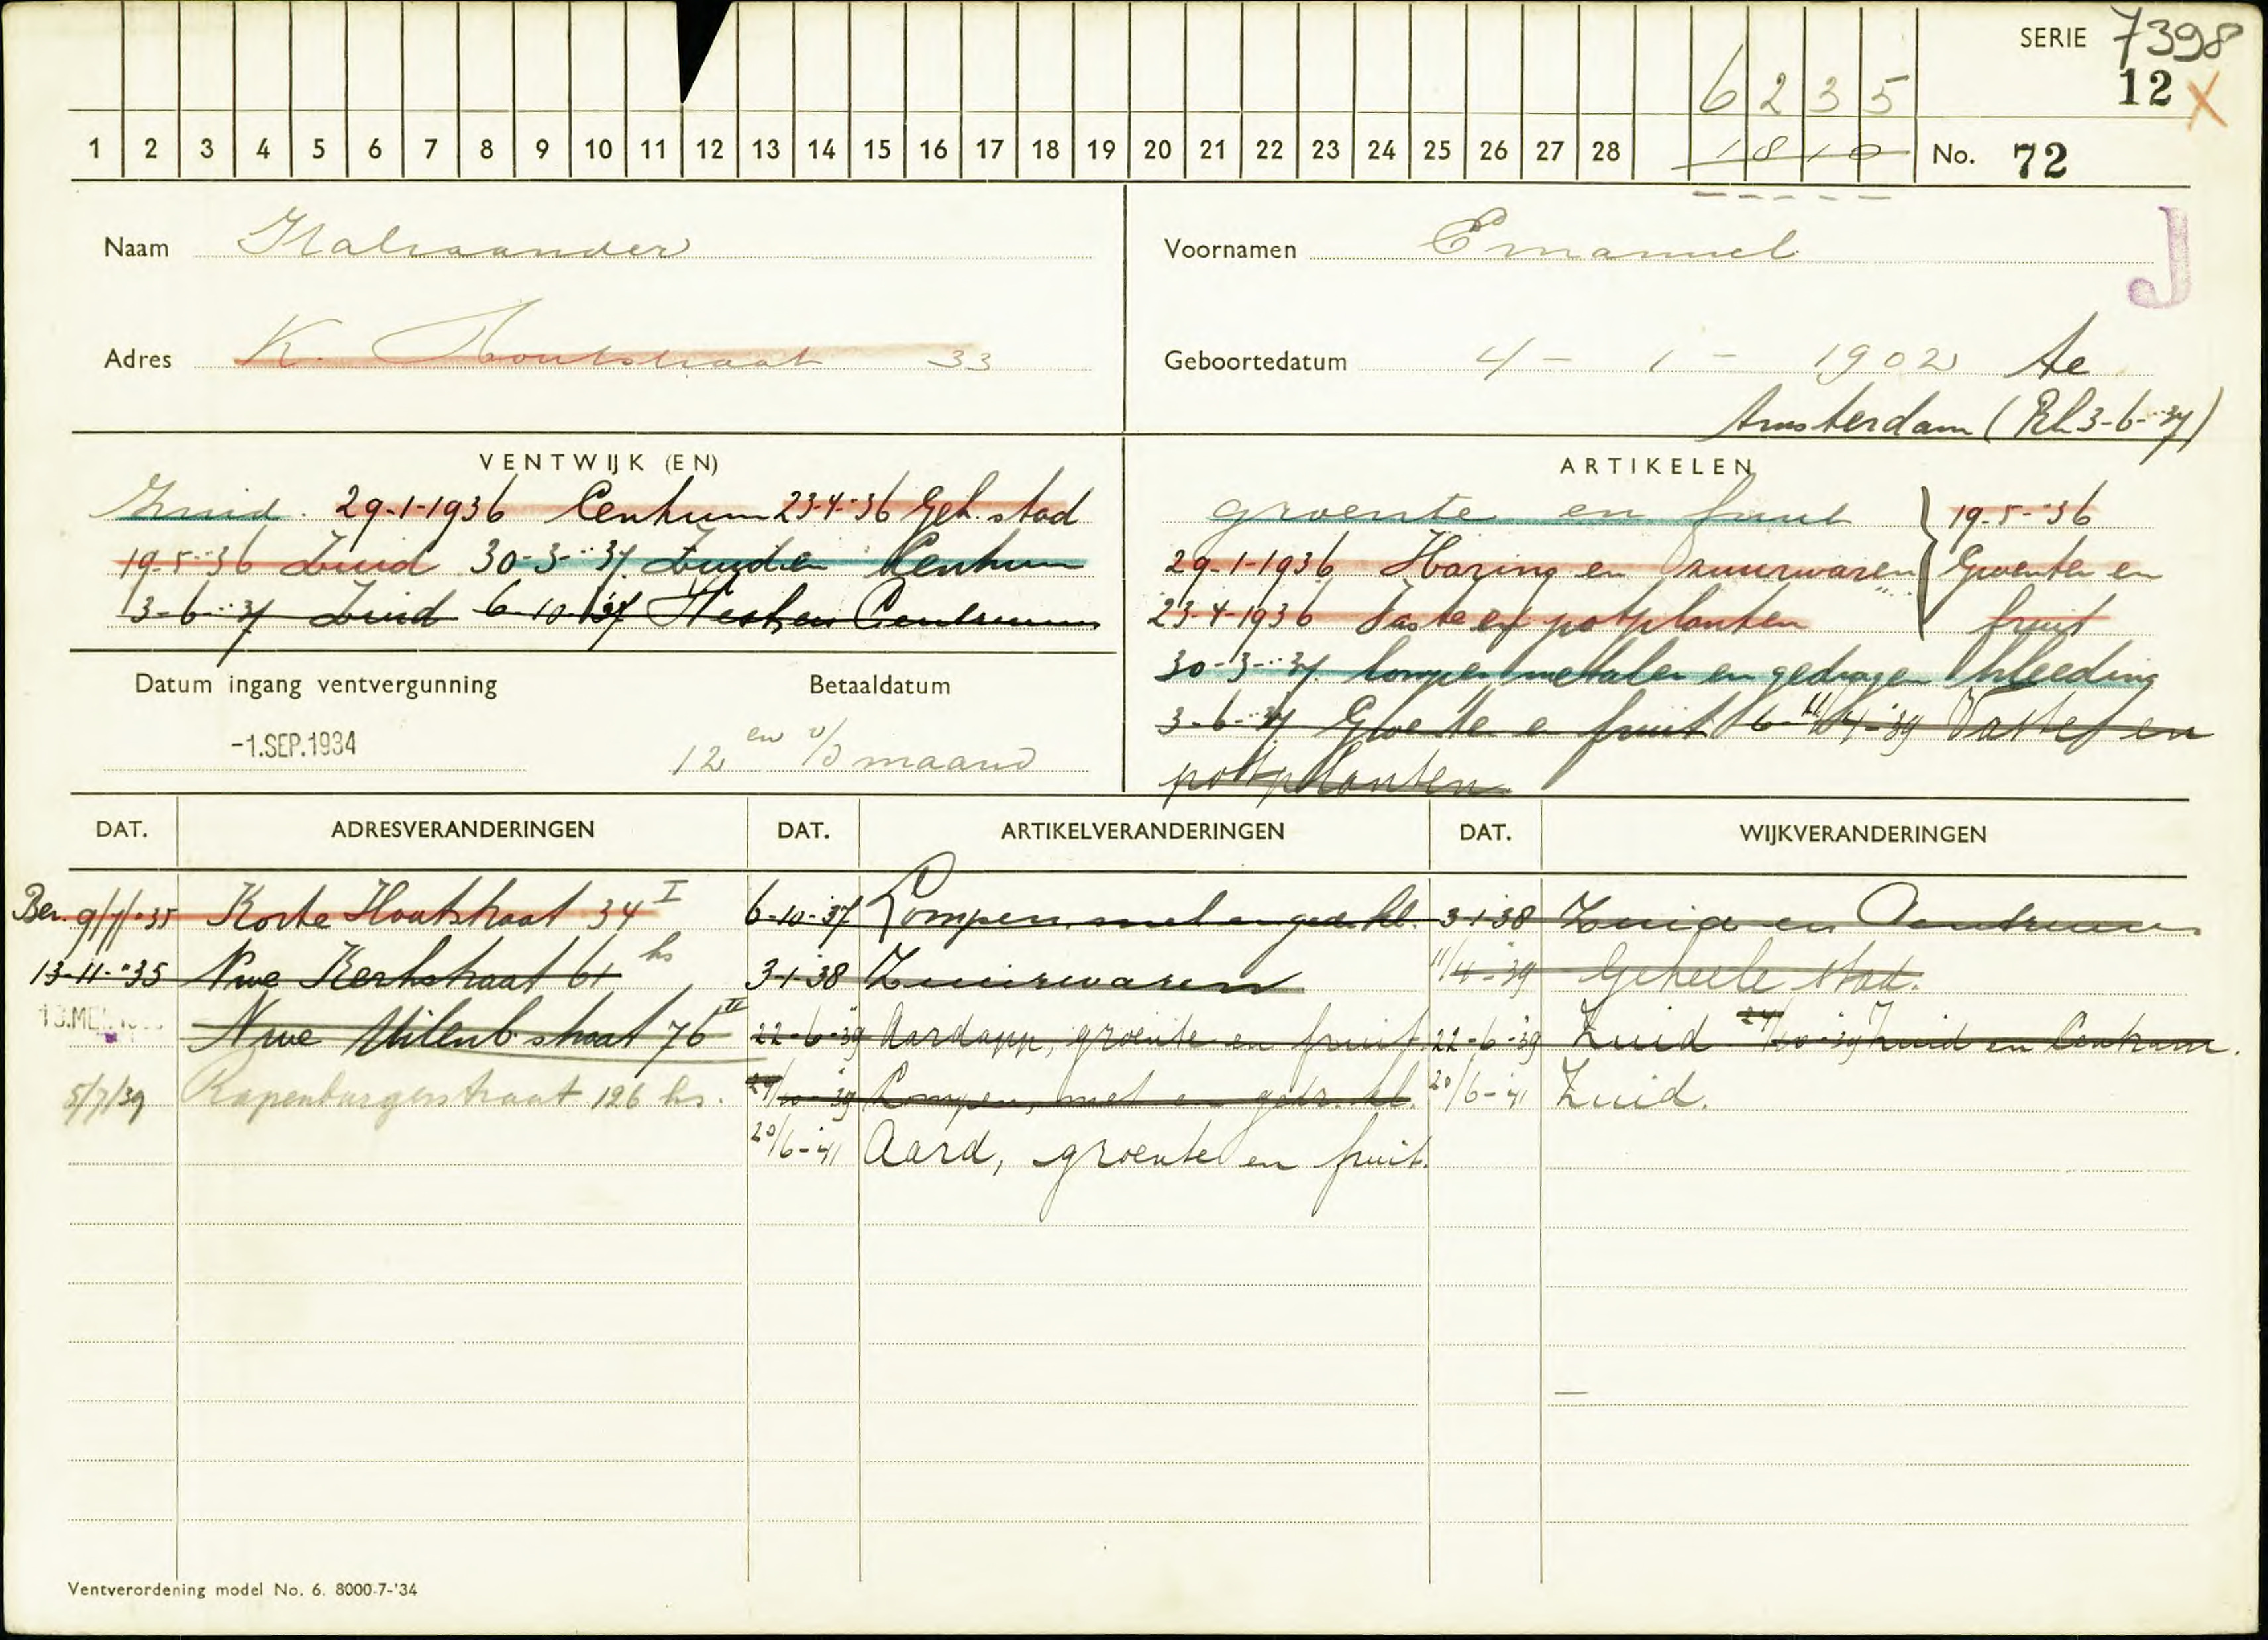 SERIE 7398
12 X
6 2 3 5
1 2 3 4 5 6 7 8 9 10 11 12 13 14 15 16 17 18 19 20 21 22 23 24 25 26 27 28 1 8 1 0 No. 72
J
Naam Halvaander
Voornamen Emanuel
Adres K. Houtstraat 33
Geboortedatum 4 - 1 - 1902 te
Amsterdam (Rh 3-6-'37)
VENTWIJK (EN)
Zuid. 29-1-1936 Centrum 23-4-'36 Geh. stad
19-5-'36 Zuid 30-3-'37 Zuid en Centrum
3-6-'37 Zuid 6-10-'37 West en Centrum
ARTIKELEN
groente en fruit
29-1-1936 Haring en zuurwaren
23-4-1936 Vaste en potplanten
19-5-'36
Groente en
fruit
30-3-'37 lompen metalen en gedragen kleeding
3-6-'37 Groente en fruit 11/4-'39 Vaste en
potplanten
Datum ingang ventvergunning
-1.SEP.1934
Betaaldatum
12 en v/d maand
DAT. ADRESVERANDERINGEN DAT. ARTIKELVERANDERINGEN DAT. WIJKVERANDERINGEN
Ber. 9/7/'35 Korte Houtstraat 34 I 6-10-'37 Lompen, met en gedr. kl. 3-1-38 Zuid en Centrum
13-11-'35 Nwe Kerkstraat 61 hs 3-1-38 Zuurwaren 11/4-'39 Geheele stad.
13.MEI Nwe Uilenb. straat 76 II 22-6-'39 Aardapp, groente en fruit. 22-6-'39 Zuid 24/10-'39 Zuid en Centrum.
5/7/39 Rapenburgerstraat 126 hs. 24/10-'39 Lompen, met en gedr. kl. 20/6-'41 Zuid.
20/6-'41 Aard, groente en fruit.
Ventverordening model No. 6. 8000-7-'34